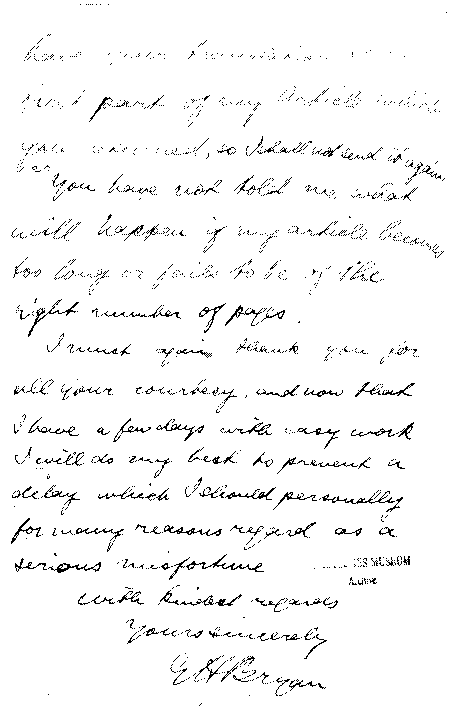 have your translation
first part of my Article which
you returned, so I shall not send it again.
You have not told me what
will happen if my article becomes
too long or fails to be of the
right number of pages.
I must again thank you for
all your courtesy, and now that
I have a few days with easy work
I will do my best to prevent a
delay which I should personally
for many reasons regard as a
serious misfortune
MUSEUM
with kindest regards
Yours sincerely
G H Bryan